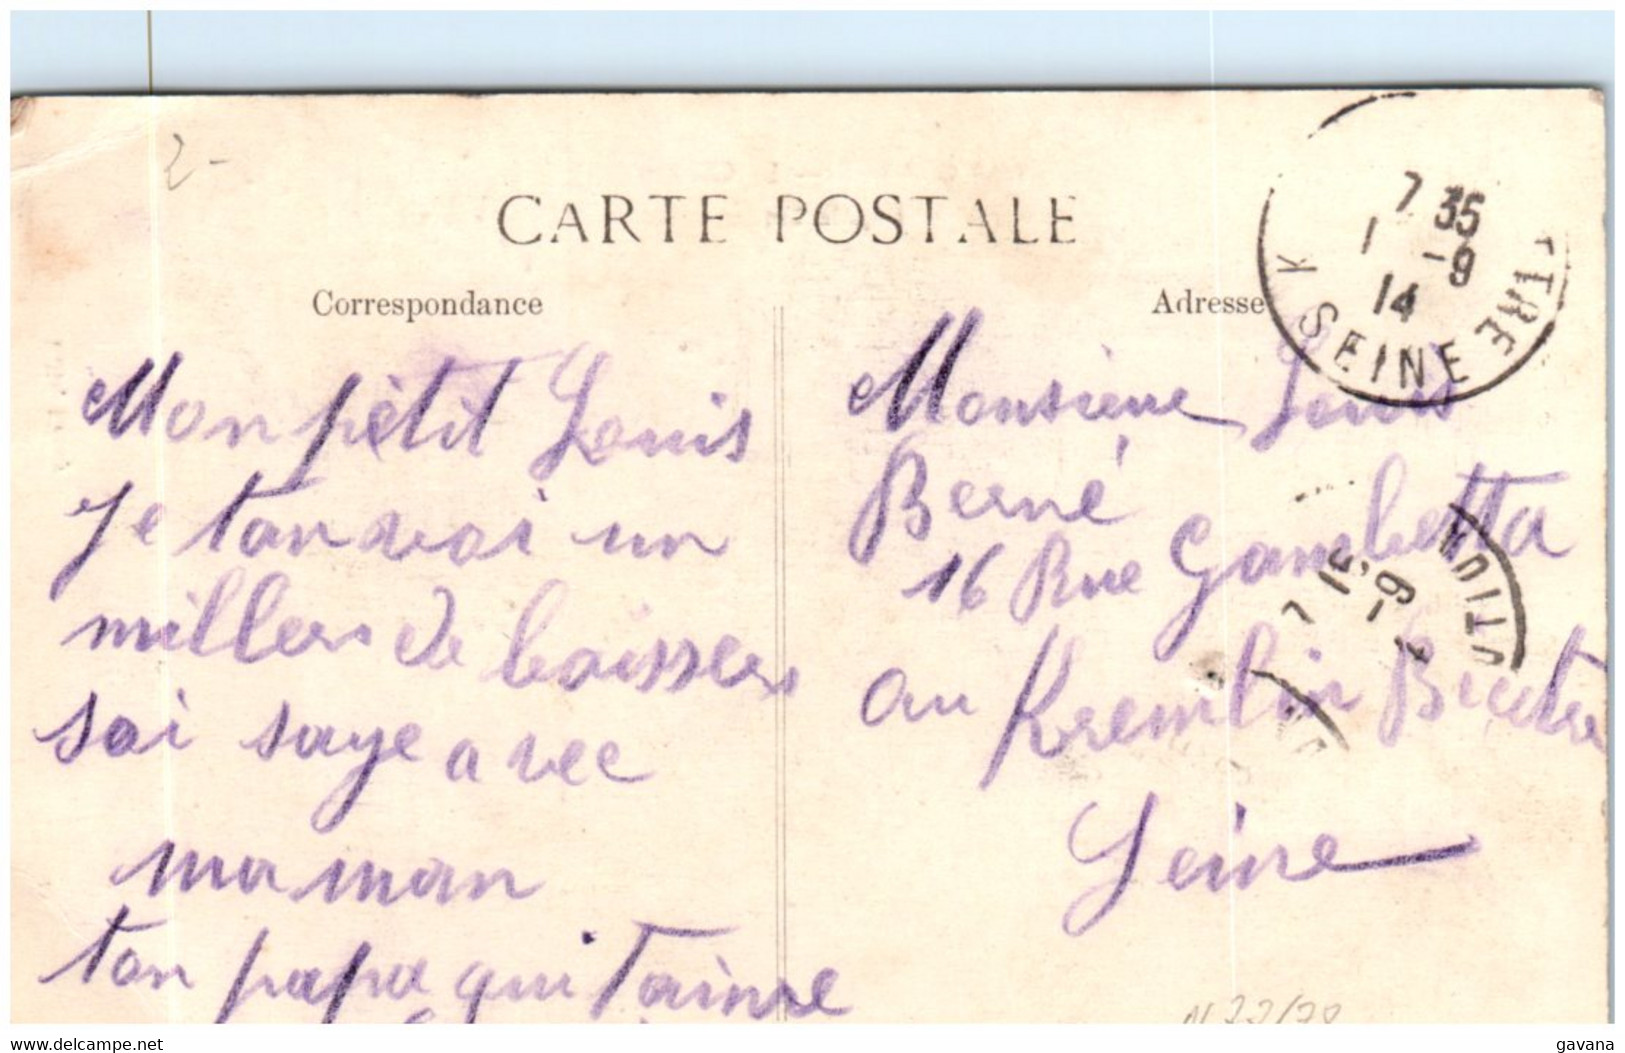 2-
CARTE POSTALE
Correspondance
Adresse
7 35
1 -9
14
K SEINE TRE
Mon pètit Louis
je tanvoi un
millers de baissers
soi saye avec
maman
ton papa qui taime
Monsieur Louis
Berné
16 Rue Gambetta
au Kremlin Bicetre
Seine
7 15
-9
N 77/78
delcampe.net
gavana